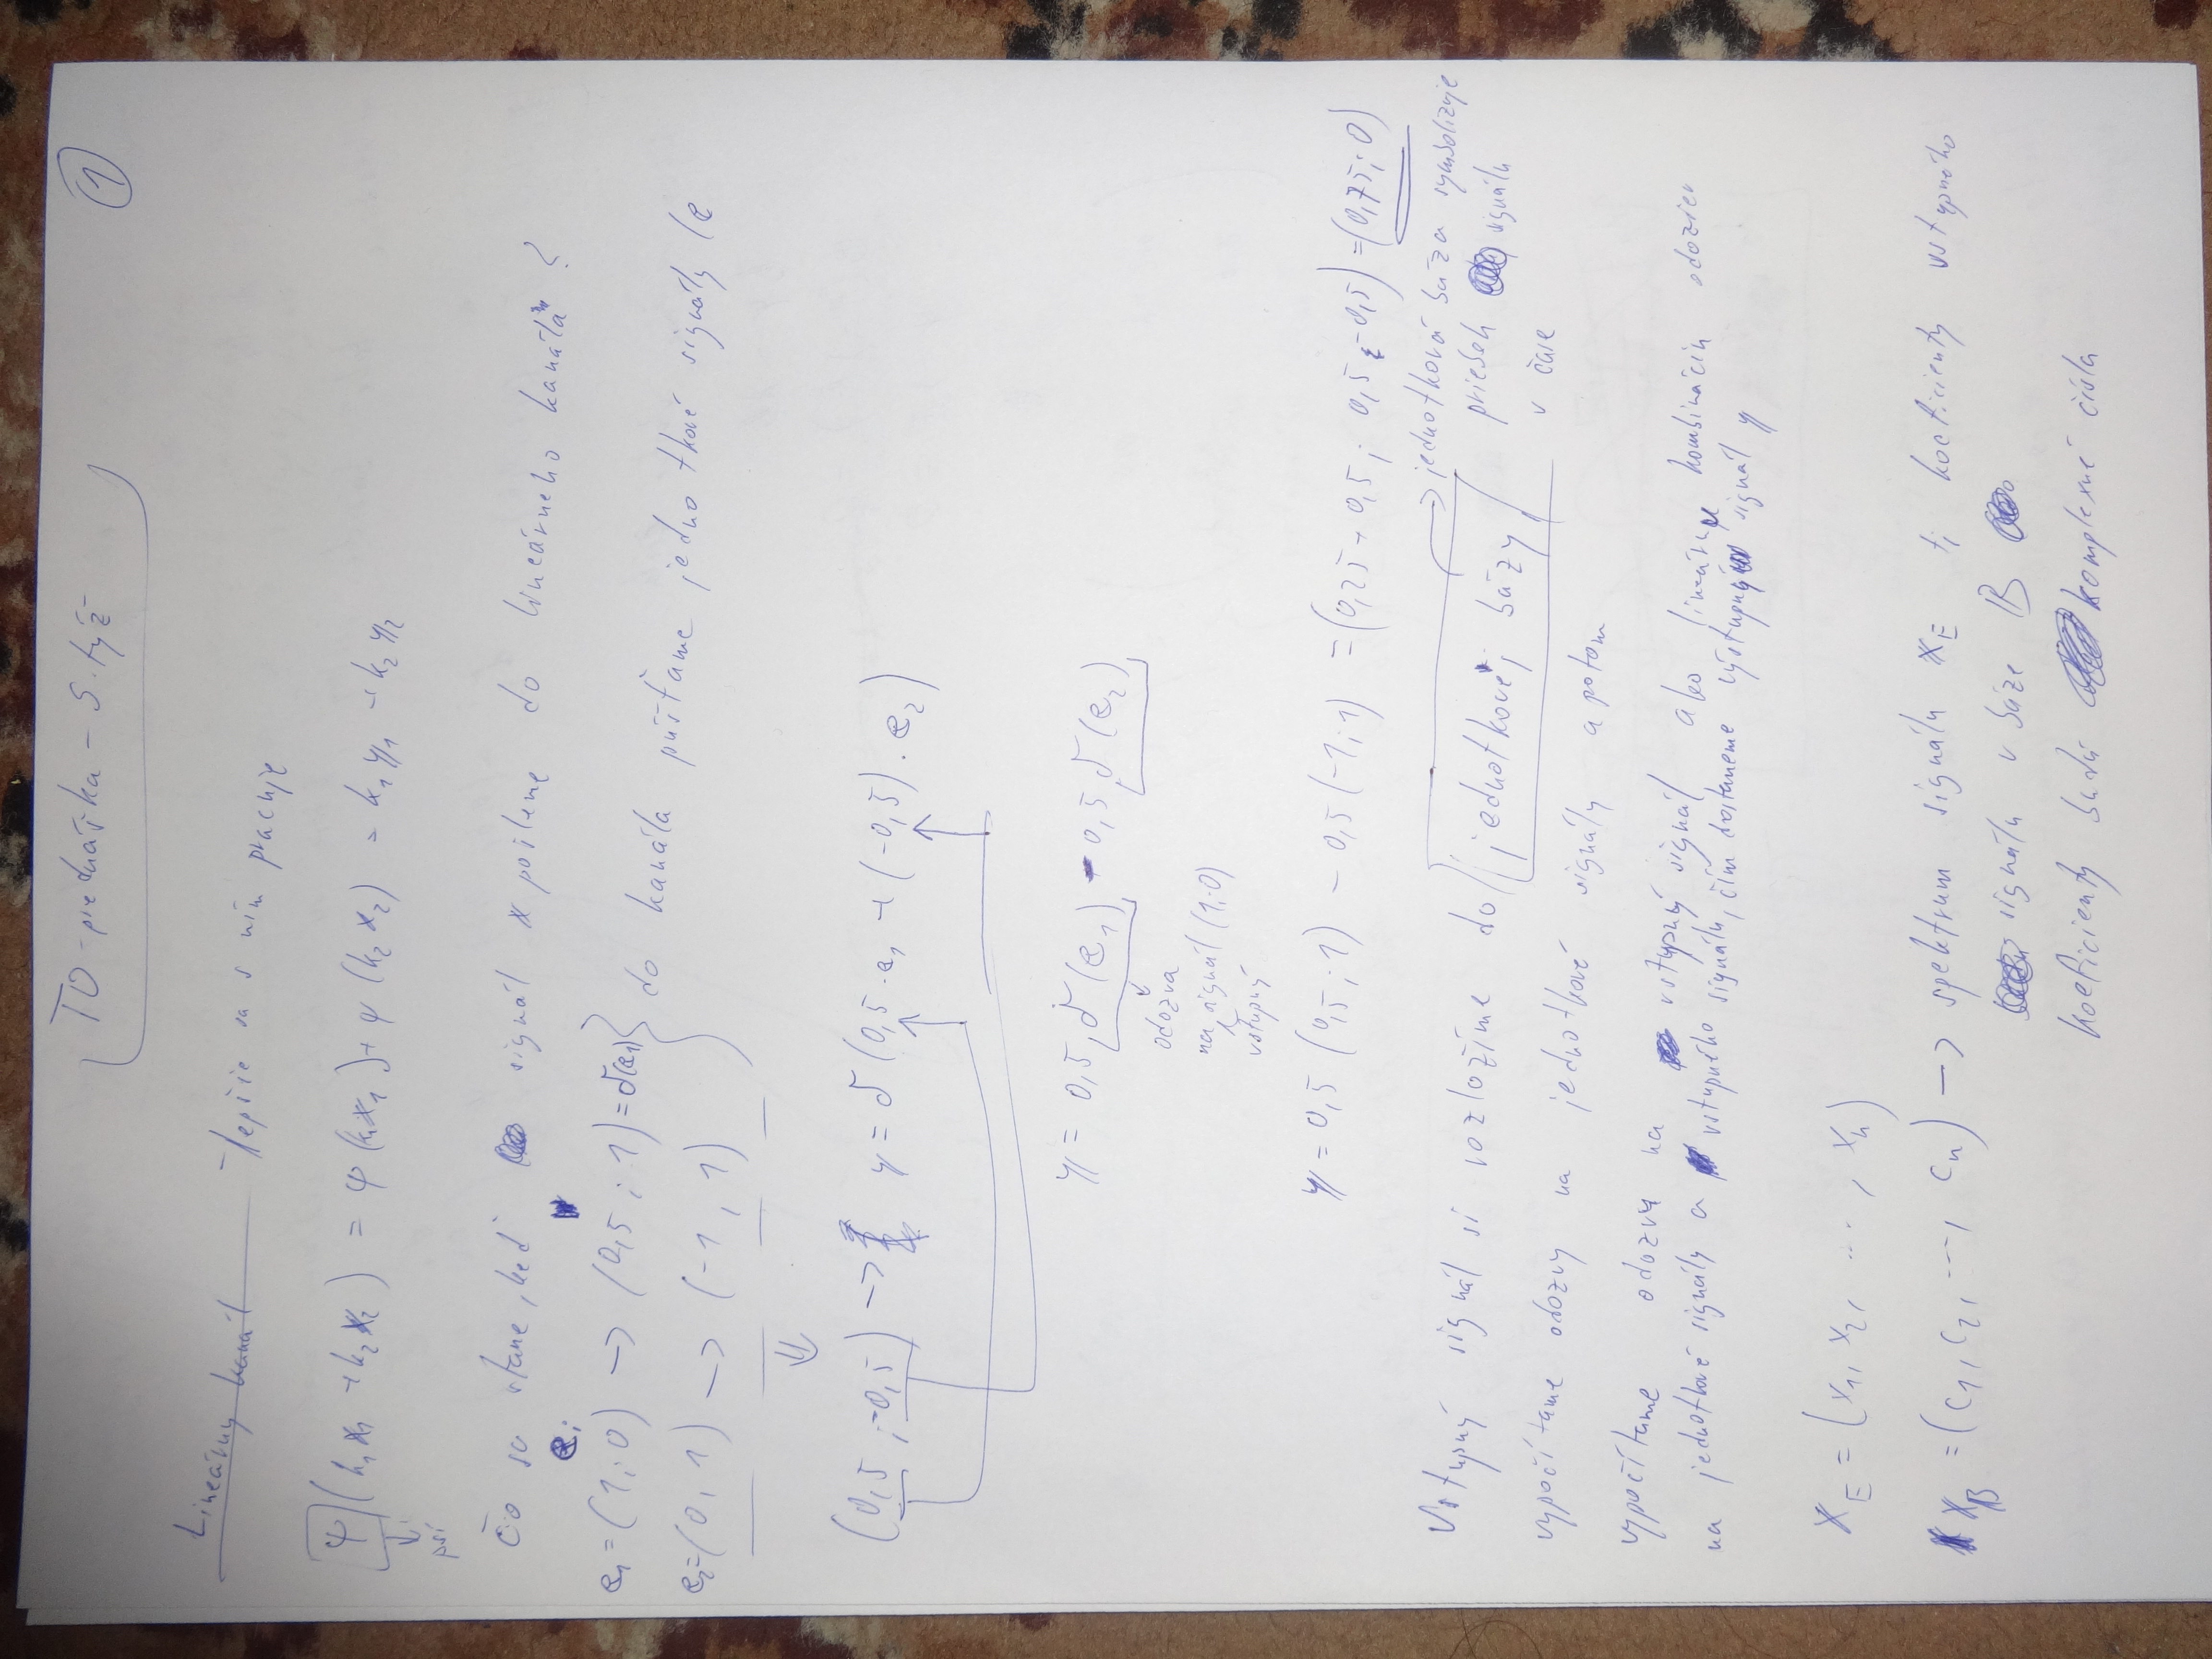 TO - prednáška - 5. týž
1
Lineárny kanál - lepšie sa s ním pracuje
ψ (k₁x₁ + k₂x₂) = ψ (k₁x₁) + ψ (k₂x₂) = k₁y₁ + k₂y₂
psí
Čo sa stane, keď signál x pošleme do lineárneho kanála ?
eᵢ
e₁ = (1; 0) → (0,5 ; 1) = δ(e₁)
do kanála púšťame jednotkové signály (e
e₂ = (0, 1) → (-1, 1)
⇓
(0,5 ; -0,5) → y = δ (0,5 · e₁ + (-0,5) . e₂)
y = 0,5 δ (e₁) - 0,5 δ (e₂)
odozva
na signál (1; 0)
vstupný
y = 0,5 (0,5 ; 1) - 0,5 (-1; 1) = (0,25 + 0,5 ; 0,5 - 0,5) = (0,75; 0)
Vstupný signál si rozložíme do jednotkovej bázy → jednotková báza symbolizuje
priebeh signálu
v čase
vypočítame odozvy na jednotkové signály a potom
vypočítame odozvu na vstupný signál ako lineárnu kombináciu odoziev
na jednotkové signály a vstupného signálu, čím dostaneme výstupný signál y
x_E = (x₁, x₂, ... , xₙ)
x_B = (c₁, c₂, ..., cₙ) → spektrum signálu x_E tj koeficienty vstupného
signálu v báze B
koeficienty budú komplexné čísla